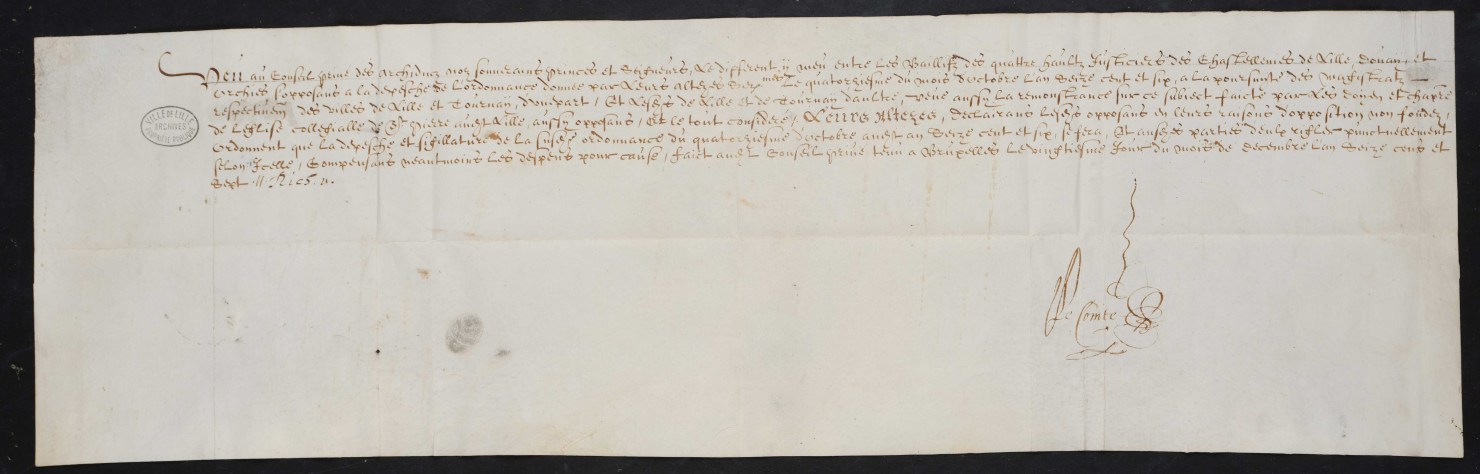 Veu au Conseil privé des Archiducz noz souverains princes et Seigneurs, Le different y meu entre Les Baillifz des quattre haultz Justiciers des Chastellenies de Lille, Douay, et
Orchies sopposans a la depesche de Lordonnance donnée par Leurs Altezes Ser.mes Le quatorziesme du mois d'octobre L'an Seize cent et six, a la poursuitte des Magistratz
respectivem des villes de Lille et Tournay, d'une part, Et de Lille et de Tournay d'aultre, Veue aussy La remonstrance sur ce subiect faicte par Les doyen et chapre
de Leglise Collegialle de St piere audt Lille, aussy opposans, Et le tout consideré, Leurs Altezes, declairans opposans en leurs raisons d'opposition non fondez,
Ordonnent que La depesche et sigillature de la susde ordonnance du quatorziesme d'octobre audt an Seize cent et six, se fera, Et parties d'eulx rigler punctuellement
selon Icelle, Compensans neantmoins Les despens pour cause, faict audt Conseil privé tenu a Bruxelles Le vingtiesme Jour du mois de decembre L'an Seize cens et
Sept // Rich. v.
Le Comte
VILLE DE LILLE
ARCHIVES